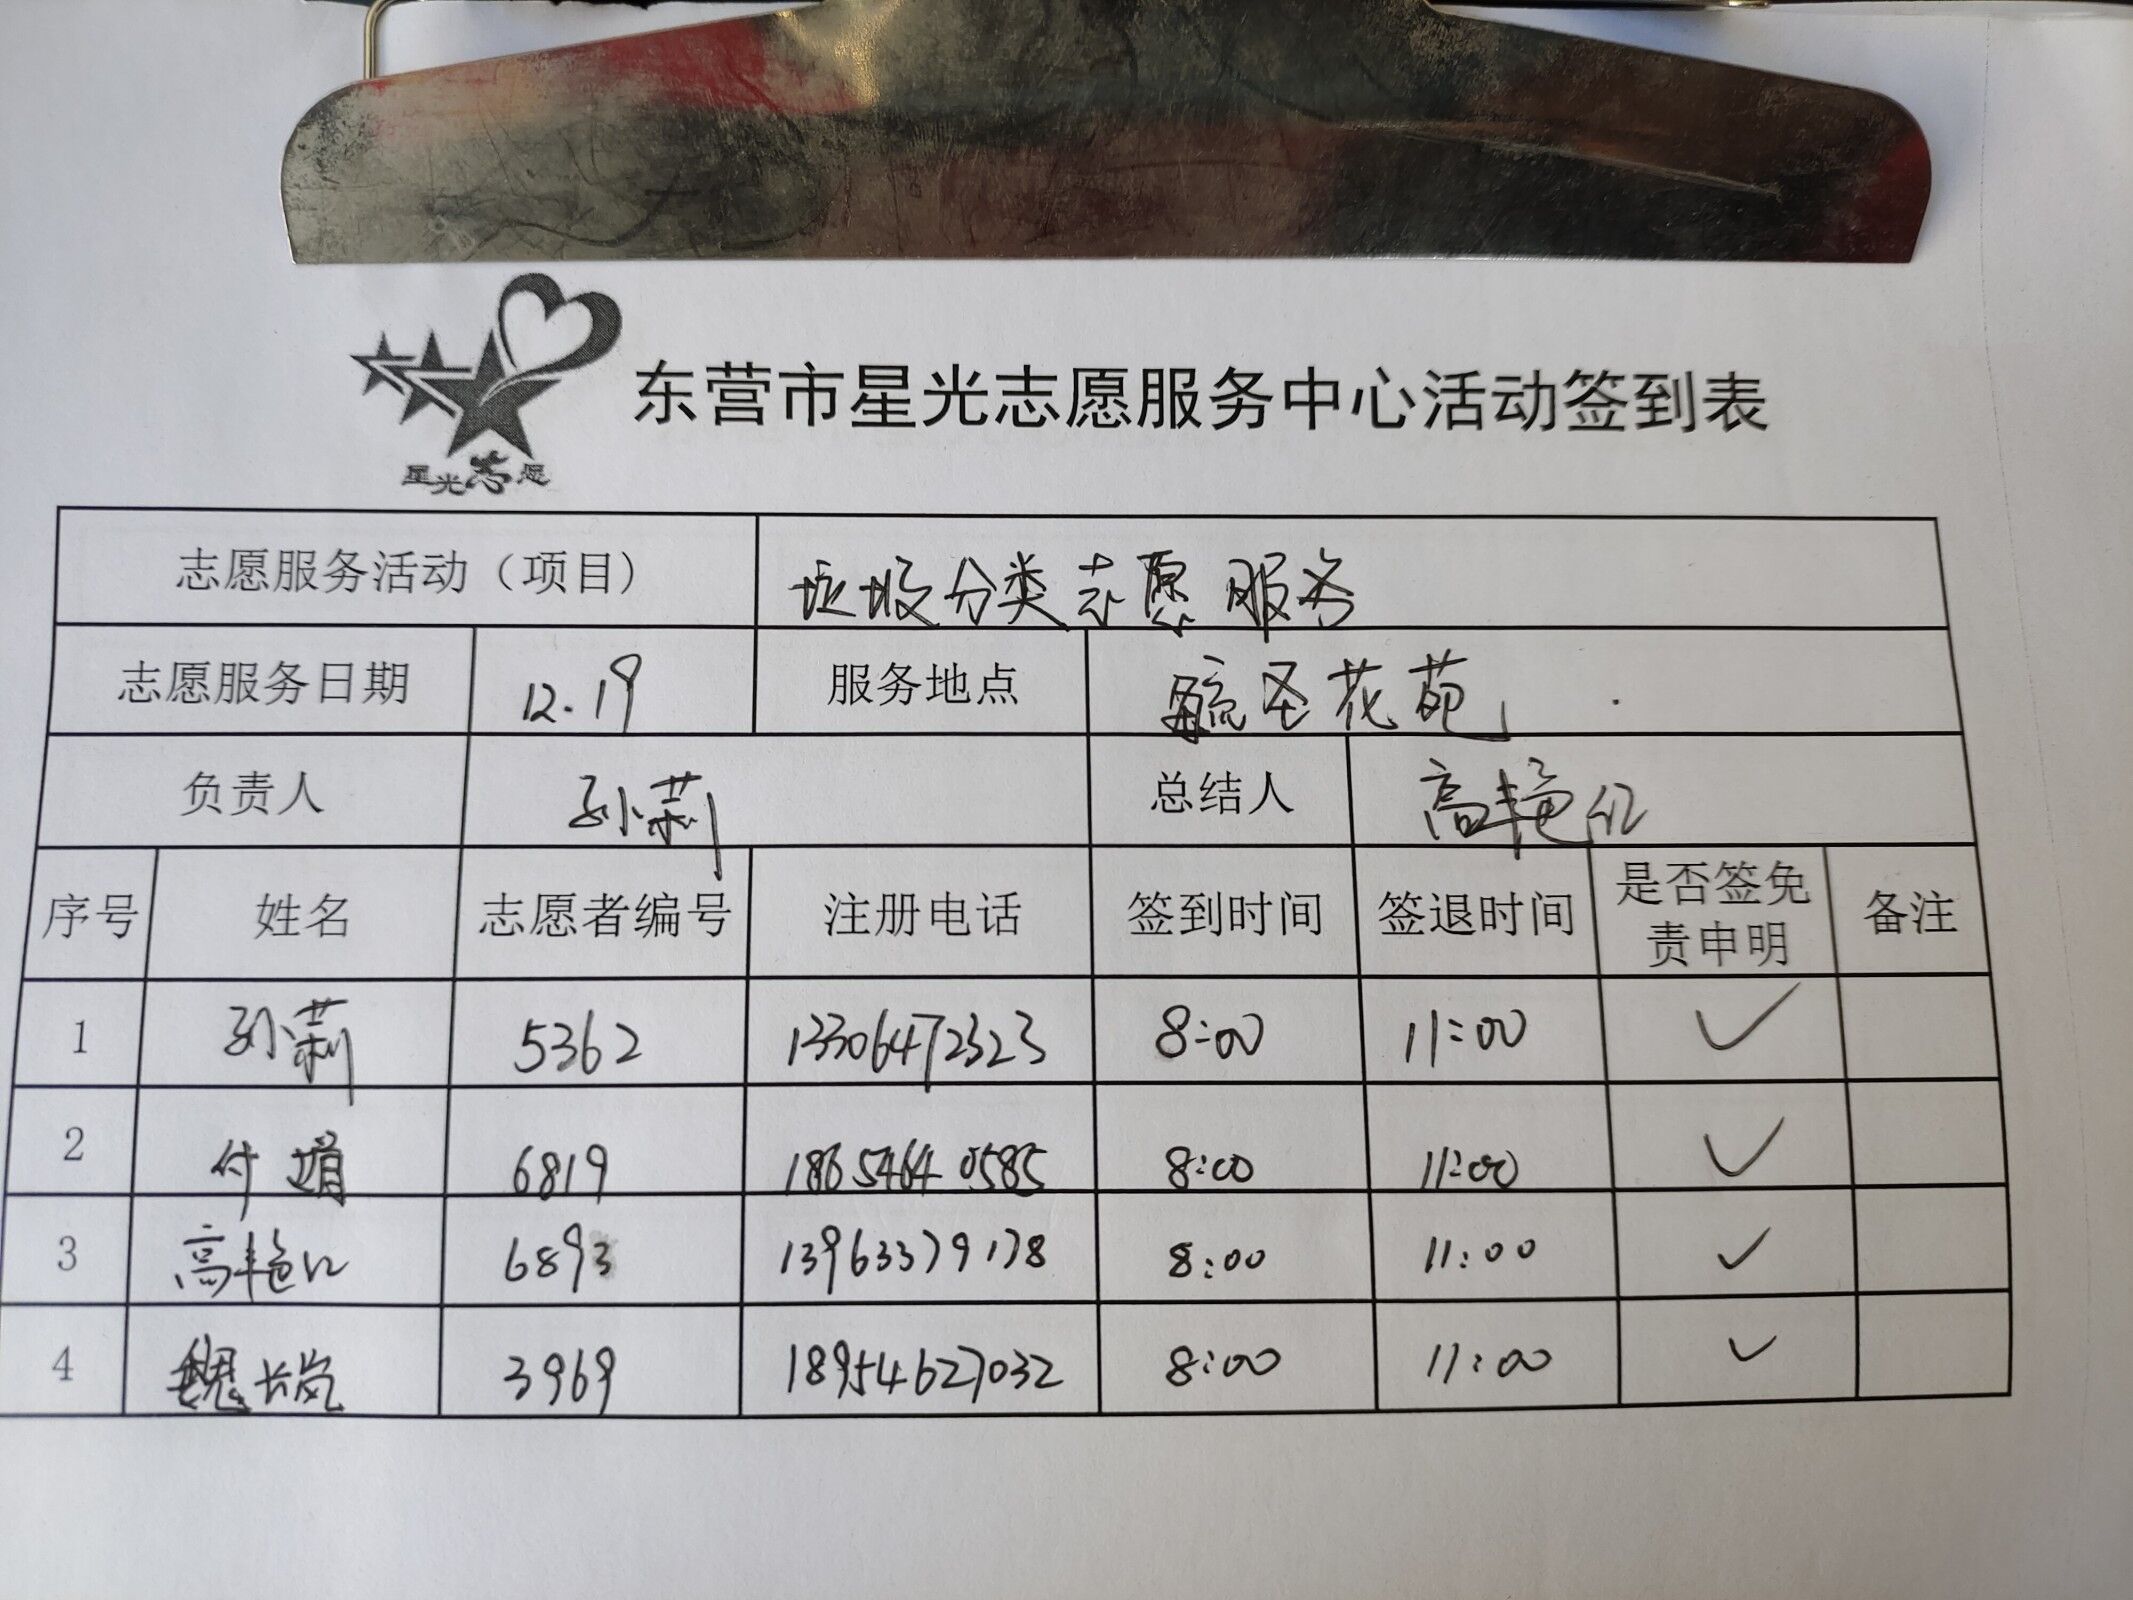 星光志愿
东营市星光志愿服务中心活动签到表
志愿服务活动（项目） 垃圾分类志愿服务
志愿服务日期 12.19 服务地点 毓圣花苑
负责人 孙莉 总结人 高艳红
序号 姓名 志愿者编号 注册电话 签到时间 签退时间 是否签免责申明 备注
1 孙莉 5362 13306472323 8:00 11:00 ✓
2 付娟 6819 18654640585 8:00 11:00 ✓
3 高艳红 6893 13963379178 8:00 11:00 ✓
4 魏长岚 3969 18954627032 8:00 11:00 ✓